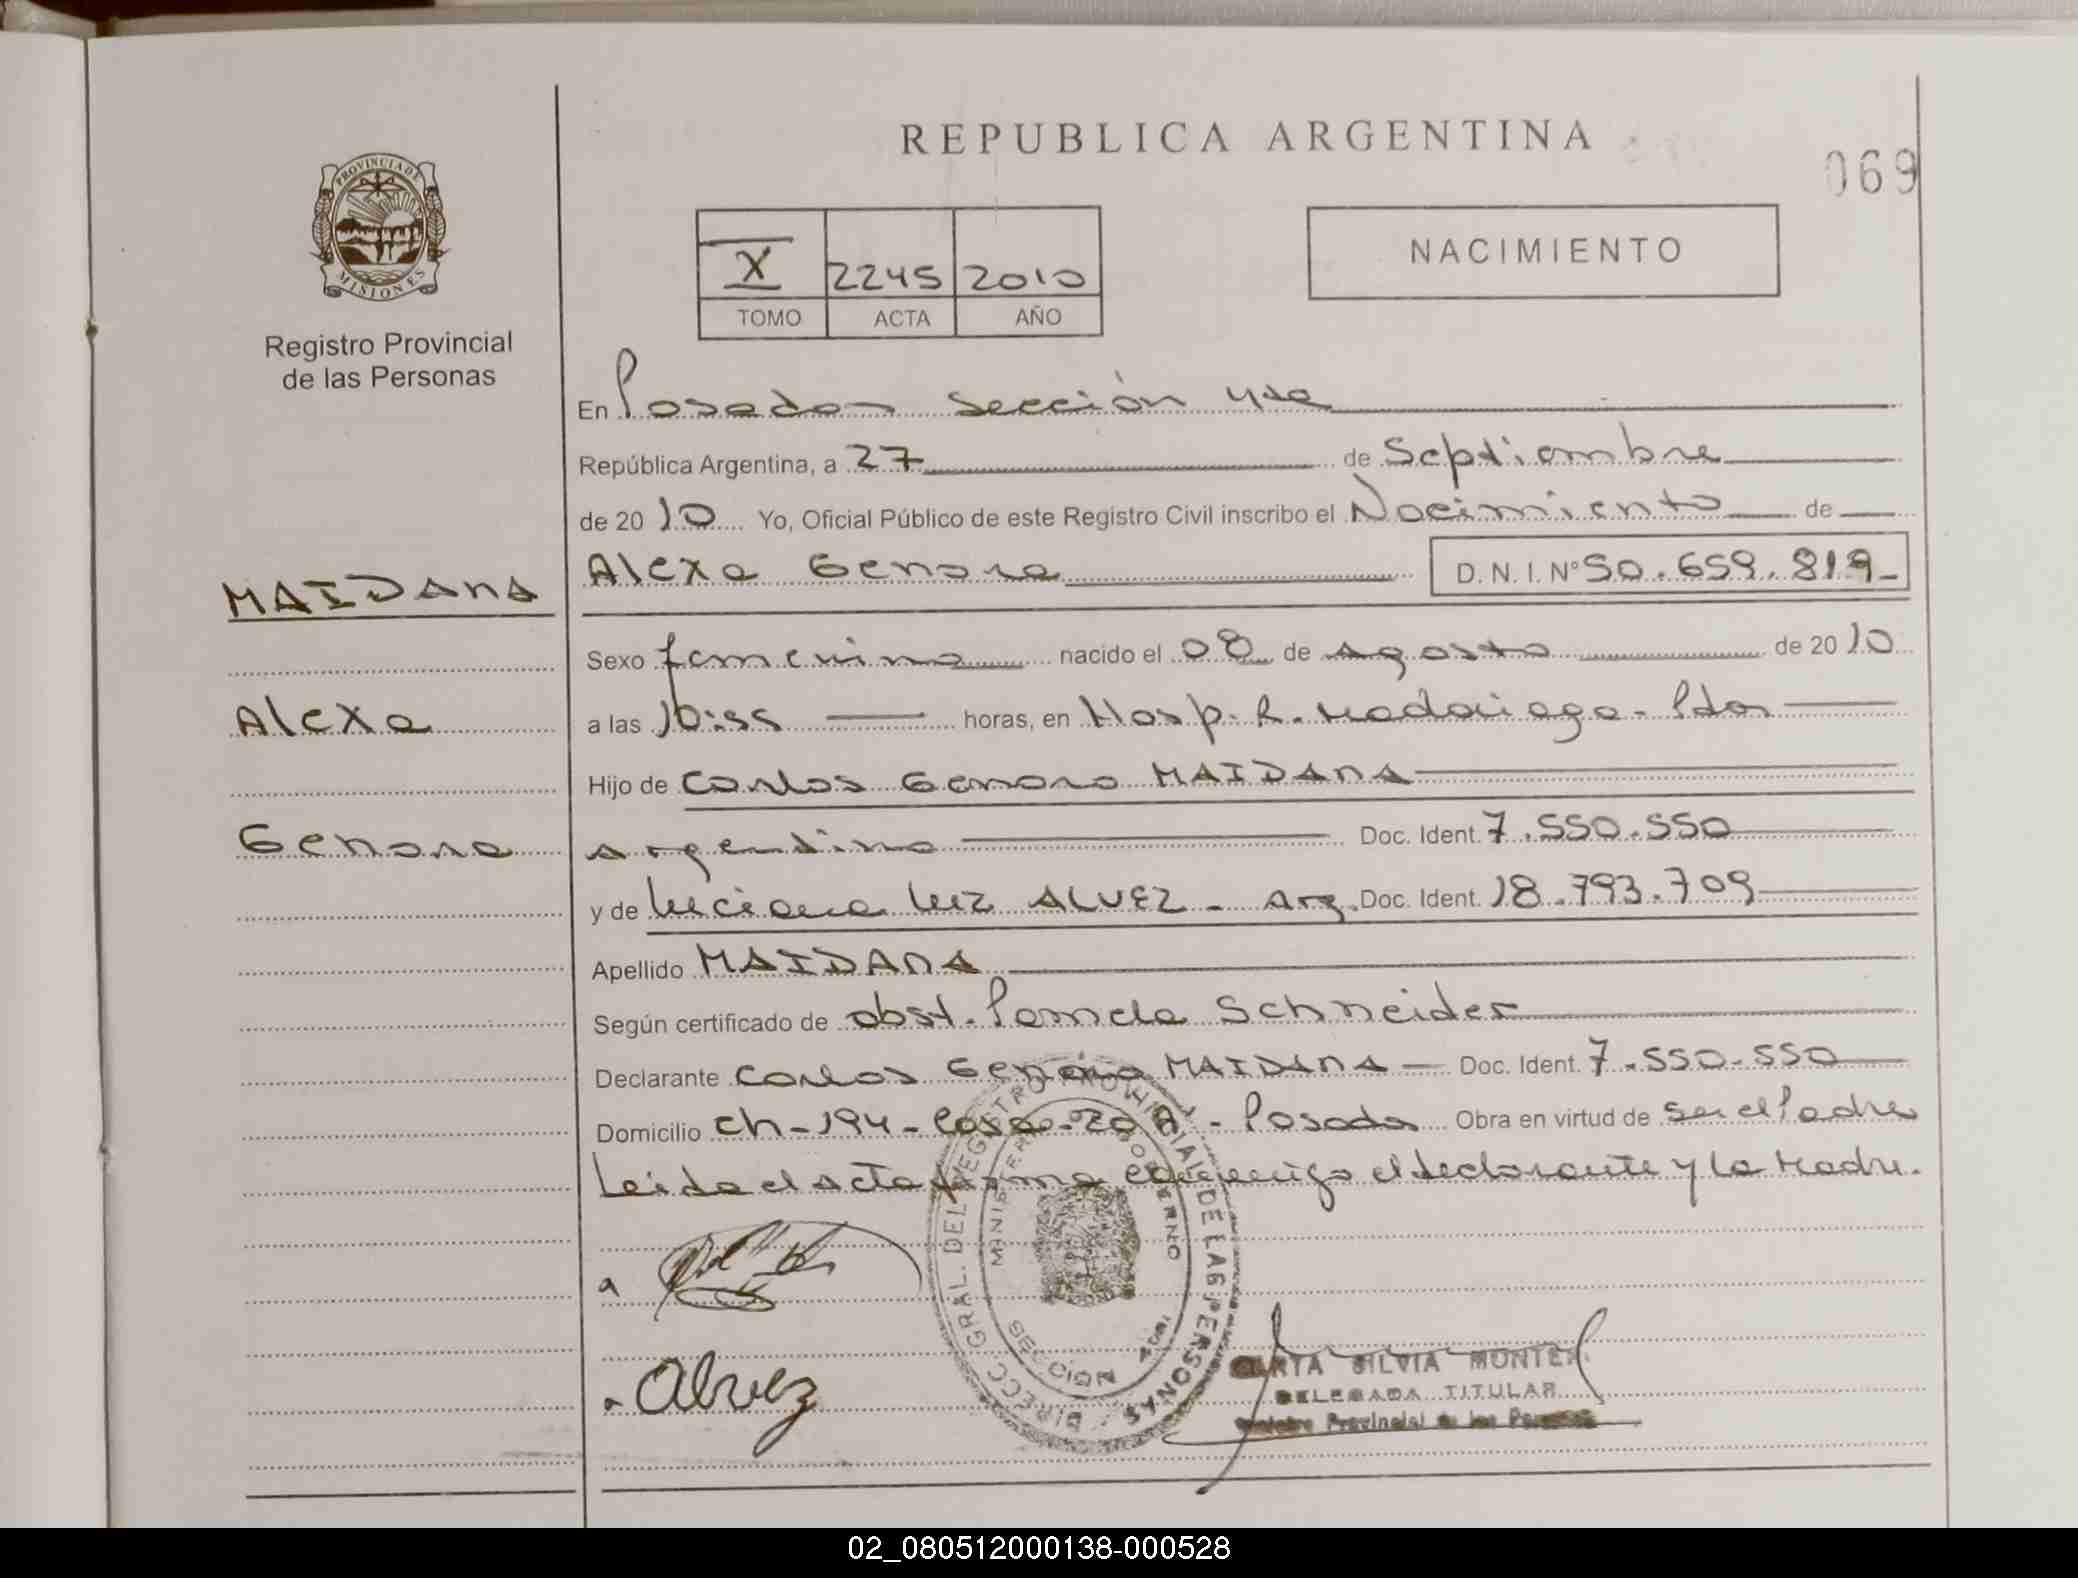 REPUBLICA ARGENTINA
069
PROVINCIA DE
MISIONES
Registro Provincial
de las Personas
X 2245 2010
TOMO ACTA AÑO
NACIMIENTO
En Posadas Sección 4ta
República Argentina, a 27 de Septiembre
de 2010 Yo, Oficial Público de este Registro Civil inscribo el Nacimiento de
MAIDANA
Alexa Genara D. N. I. N° 50.659.819
Sexo femenino nacido el 08 de Agosto de 2010
Alexa
a las 10:55 horas, en Hosp. R. Madariaga - Pdas
Hijo de Carlos Genaro MAIDANA
Genara
argentino Doc. Ident. 7.550.550
y de Luciana Luz ALVEZ - Arg. Doc. Ident. 18.793.709
Apellido MAIDANA
Según certificado de obst. Pamela Schneider
Declarante Carlos Genaro MAIDANA Doc. Ident. 7.550.550
Domicilio Ch-194-Casa-20 - Posadas Obra en virtud de Ser el Padre
Leida el acta firma conmigo el declarante y la Madre.
DIRECC GRAL. DEL REGISTRO PROVINCIAL DE LAS PERSONAS
MINISTERIO GOBIERNO
SECCION
a
a Alvez
SILVIA MONTE
DELEGADA TITULAR
Registro Provincial de las Personas
02_080512000138-000528